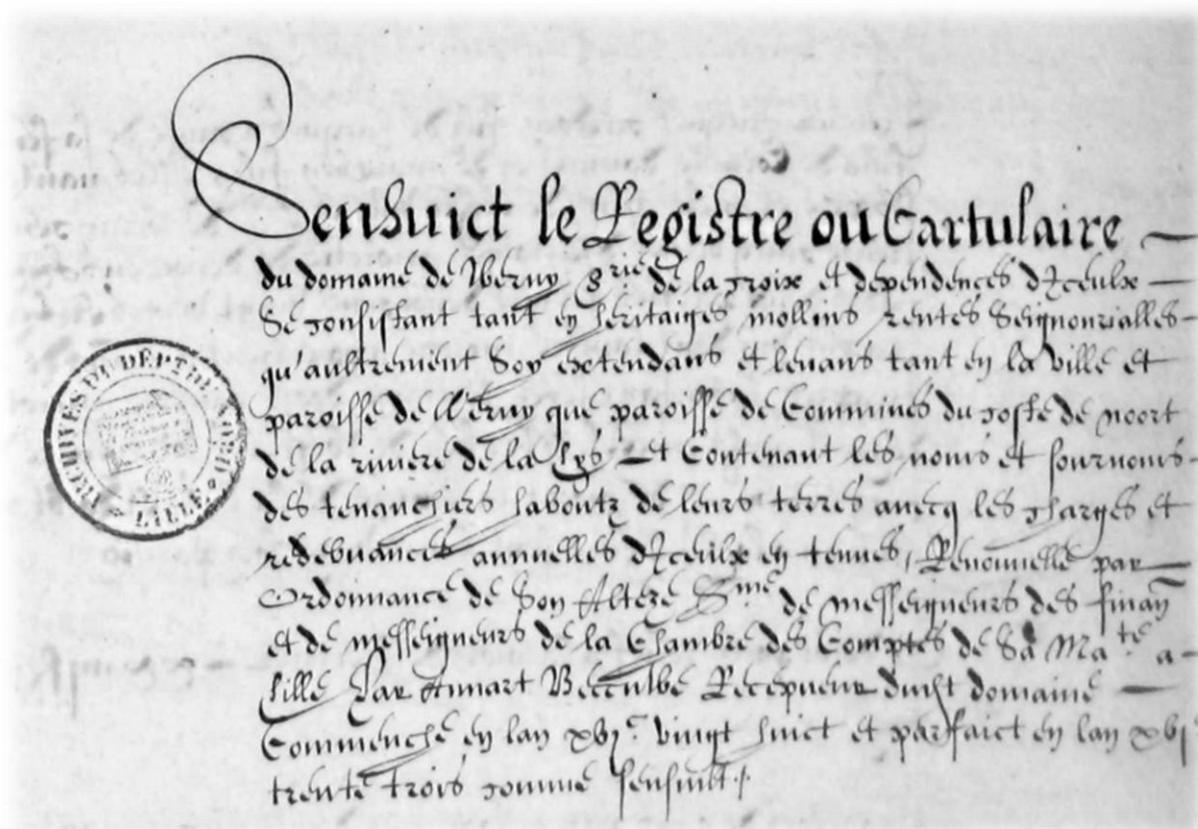 Sensuict le Registre ou Cartulaire
du domaine de Wervy Srie de la Croix et dependences diceulx
se consistant tant en heritaiges mollins rentes Seignourialles
qu'aultrement Soy extendans et levans tant en la ville et
paroisse de Wervy que paroisse de Commines du coste de noort
de la riviere de la Lys et Contenant les noms et sournoms
des tenanchiers haboutz de leurs terres avecq les charges et
redebvances annuelles diceulx en tenues, Renouvelle par
Ordonnance de Son Alteze Sme de messeigneurs des finan
et de messeigneurs de la Chambre des Comptes de Sa Mate a
Lille Par Annart Recepveur duict domaine
Commenche en lan xvjc vingt huict et parfaict en lan xvj
trente trois comme sensuilt
ARCHIVES DU DEPT DU NORD
LILLE